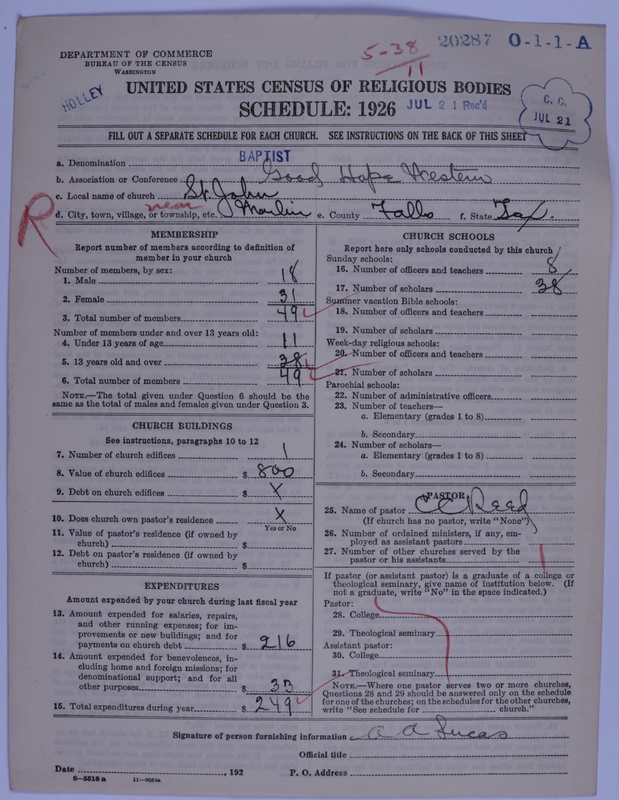 DEPARTMENT OF COMMERCE
BUREAU OF THE CENSUS
WASHINGTON
5-38
11
20287 0-1-1-A
HOLLEY
UNITED STATES CENSUS OF RELIGIOUS BODIES
SCHEDULE: 1926
JUL 21 Rec'd
C. C.
JUL 21
FILL OUT A SEPARATE SCHEDULE FOR EACH CHURCH. SEE INSTRUCTIONS ON THE BACK OF THIS SHEET
a. Denomination BAPTIST
b. Association or Conference Good Hope Western
c. Local name of church St. John
near
d. City, town, village, or township, etc. Marlin e. County Falls f. State Tex.
R
MEMBERSHIP
Report number of members according to definition of
member in your church
Number of members, by sex:
1. Male 18
2. Female 31
3. Total number of members 49
Number of members under and over 13 years old:
4. Under 13 years of age 11
5. 13 years old and over 38
6. Total number of members 49
NOTE.—The total given under Question 6 should be the
same as the total of males and females given under Question 3.
CHURCH BUILDINGS
See instructions, paragraphs 10 to 12
7. Number of church edifices 1
8. Value of church edifices $ 800
9. Debt on church edifices $ X
10. Does church own pastor's residence X
Yes or No
11. Value of pastor's residence (if owned by
church) $
12. Debt on pastor's residence (if owned by
church) $
EXPENDITURES
Amount expended by your church during last fiscal year
13. Amount expended for salaries, repairs,
and other running expenses; for im-
provements or new buildings; and for
payments on church debt $ 216
14. Amount expended for benevolences, in-
cluding home and foreign missions; for
denominational support; and for all
other purposes $ 33
15. Total expenditures during year $ 249
CHURCH SCHOOLS
Report here only schools conducted by this church
Sunday schools:
16. Number of officers and teachers 8
17. Number of scholars 38
Summer vacation Bible schools:
18. Number of officers and teachers
19. Number of scholars
Week-day religious schools:
20. Number of officers and teachers
21. Number of scholars
Parochial schools:
22. Number of administrative officers
23. Number of teachers—
a. Elementary (grades 1 to 8)
b. Secondary
24. Number of scholars—
a. Elementary (grades 1 to 8)
b. Secondary
PASTOR
25. Name of pastor CC Reed
(If church has no pastor, write "None")
26. Number of ordained ministers, if any, em-
ployed as assistant pastors
27. Number of other churches served by the
pastor or his assistants
If pastor (or assistant pastor) is a graduate of a college or
theological seminary, give name of institution below. (If
not a graduate, write "No" in the space indicated.)
Pastor:
28. College
29. Theological seminary
Assistant pastor:
30. College
31. Theological seminary
NOTE.—Where one pastor serves two or more churches,
Questions 28 and 29 should be answered only on the schedule
for one of the churches; on the schedules for the other churches,
write "See schedule for church."
Signature of person furnishing information A A Lucas
Official title
Date , 192 P. O. Address
6-5518a 11-9034a